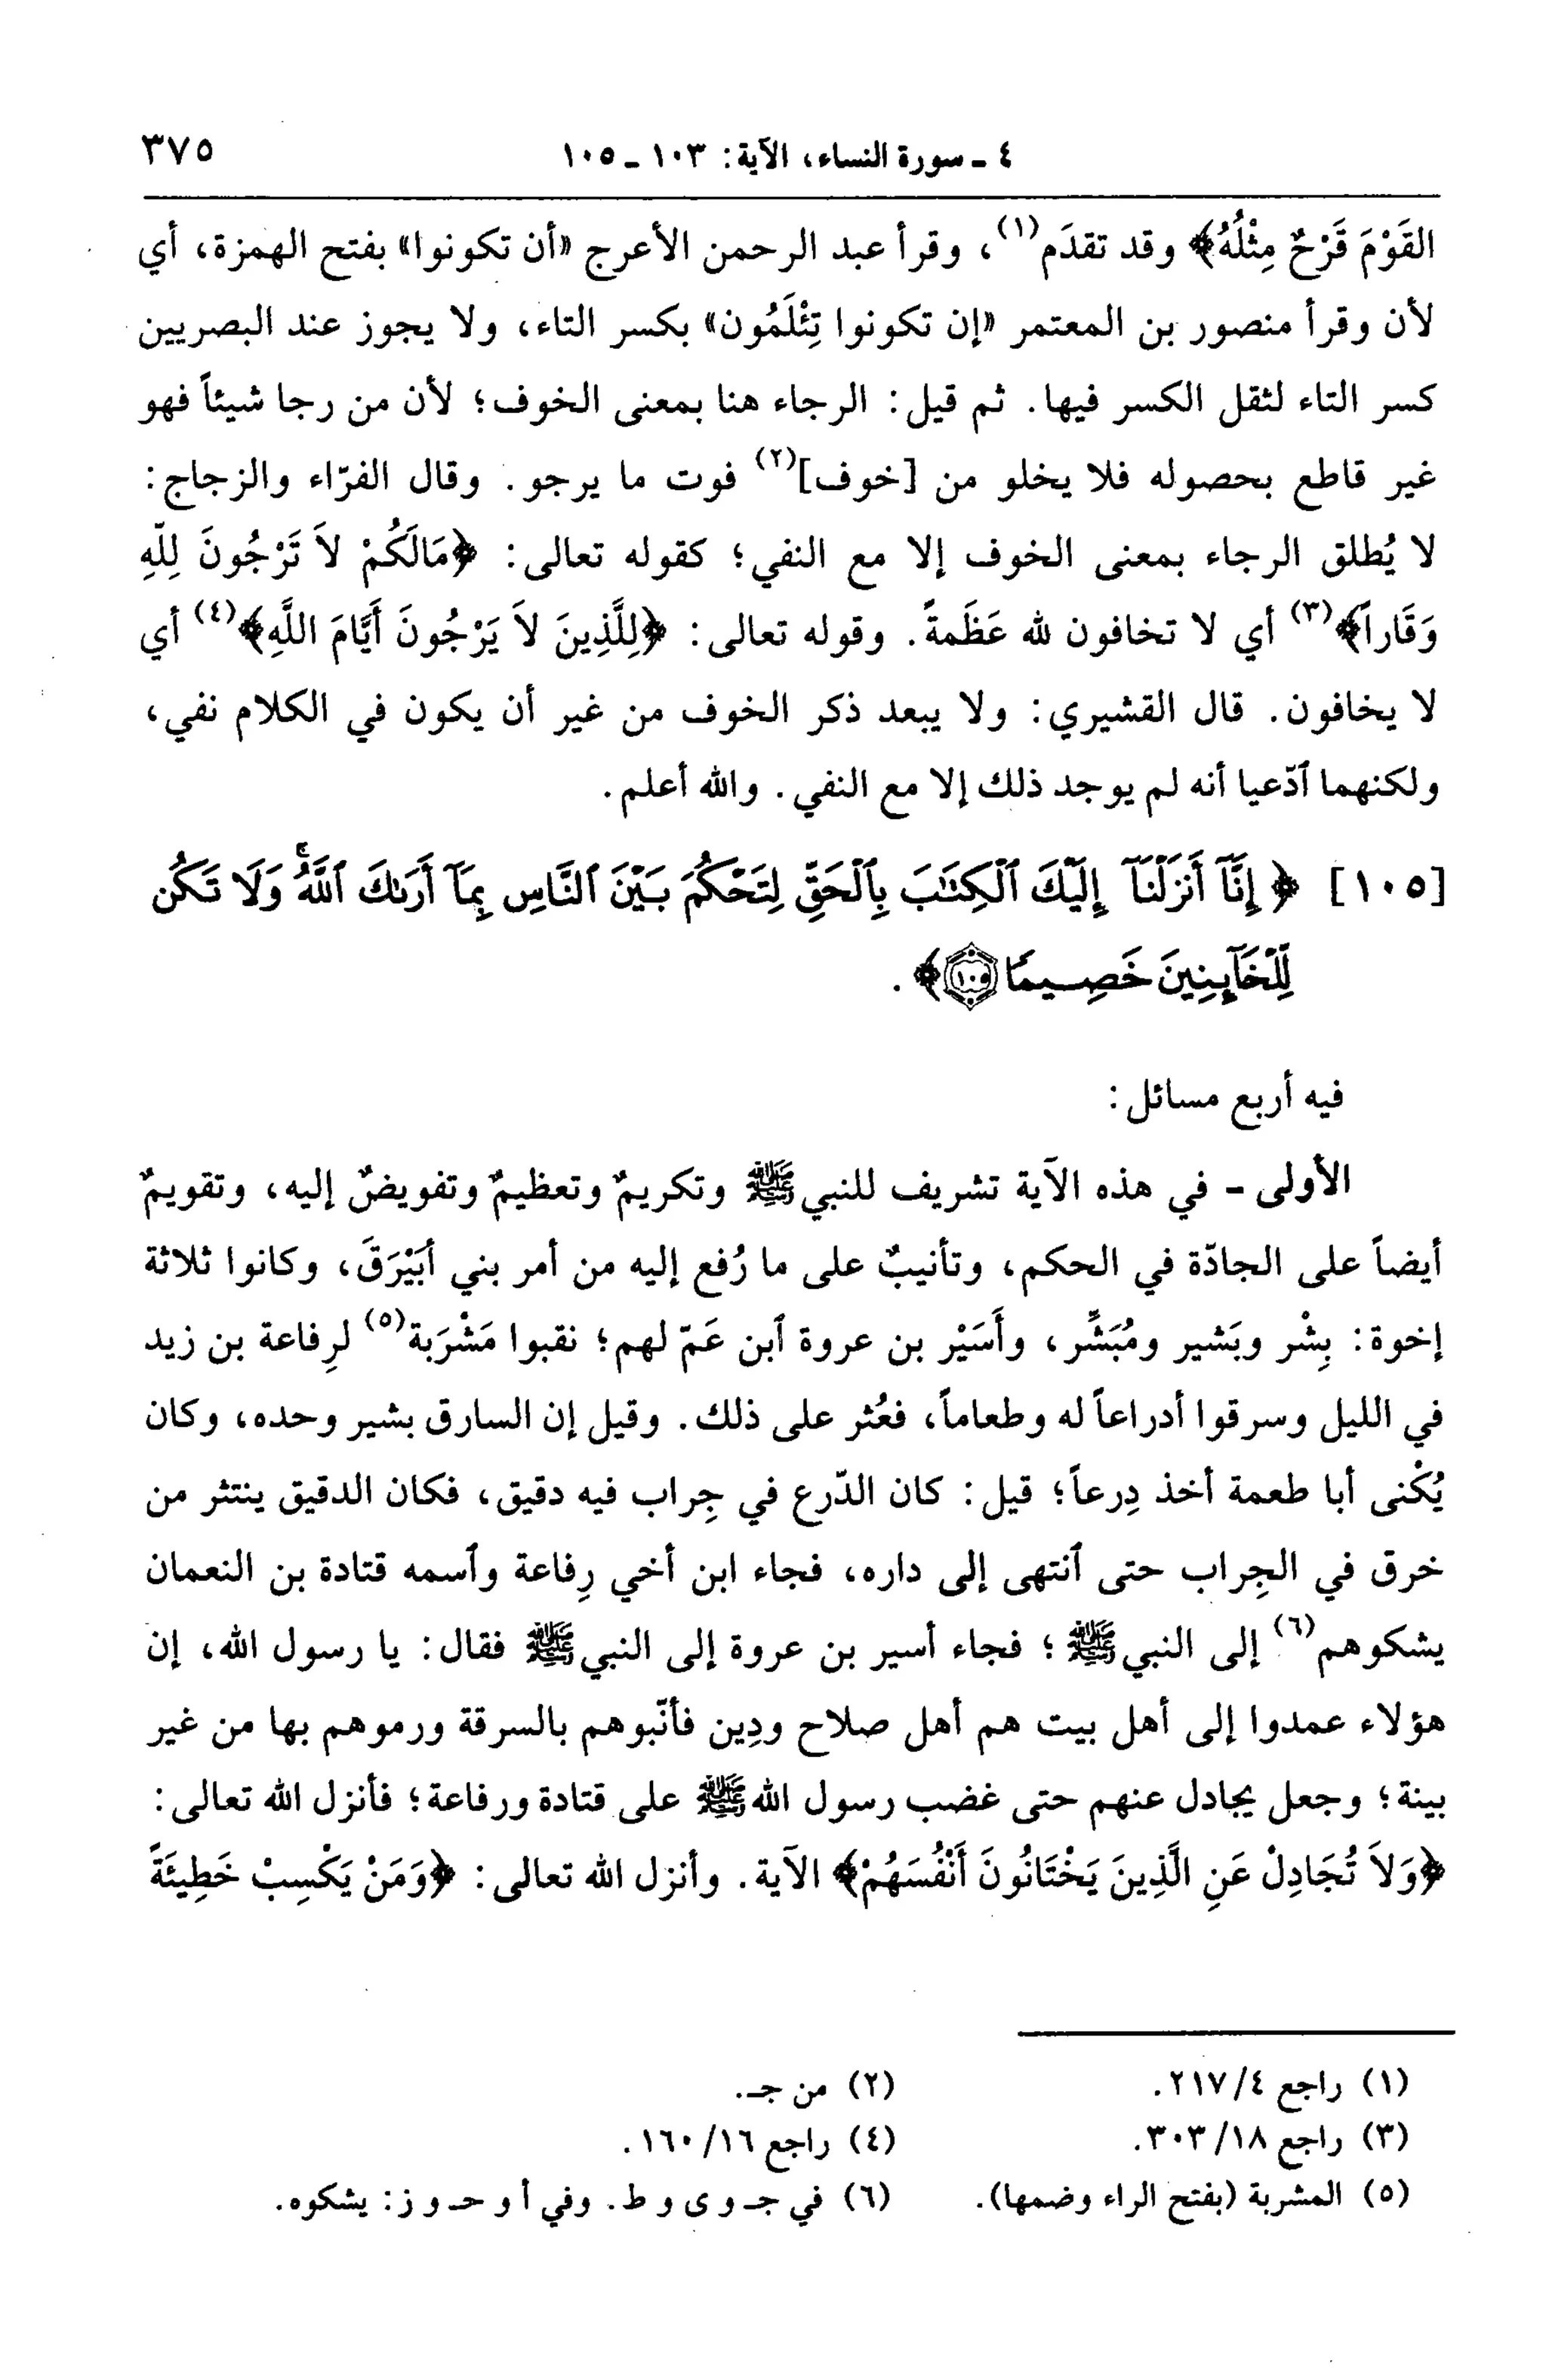 ٤ ـ سورة النساء، الآية: ١٠٣ ـ ١٠٥
٣٧٥
القَوْمَ قَرْحٌ مِثْلُهُ﴾ وقد تقدَم(١)، وقرأ عبد الرحمن الأعرج «أن تكونوا» بفتح الهمزة، أي
لأن وقرأ منصور بن المعتمر «إن تكونوا تِئْلَمُون» بكسر التاء، ولا يجوز عند البصريين
كسر التاء لثقل الكسر فيها. ثم قيل: الرجاء هنا بمعنى الخوف؛ لأن من رجا شيئاً فهو
غير قاطع بحصوله فلا يخلو من [خوف](٢) فوت ما يرجو. وقال الفرّاء والزجاج:
لا يُطلق الرجاء بمعنى الخوف إلا مع النفي؛ كقوله تعالى: ﴿مَالَكُمْ لاَ تَرْجُونَ لِلّهِ
وَقَاراً﴾(٣) أي لا تخافون لله عَظَمةً. وقوله تعالى: ﴿لِلَّذِينَ لاَ يَرْجُونَ أَيَّامَ اللَّهِ﴾(٤) أي
لا يخافون. قال القشيري: ولا يبعد ذكر الخوف من غير أن يكون في الكلام نفي،
ولكنهما ٱدّعيا أنه لم يوجد ذلك إلا مع النفي. والله أعلم.
[١٠٥] ﴿ إِنَّآ أَنزَلْنَآ إِلَيْكَ ٱلْكِتَٰبَ بِٱلْحَقِّ لِتَحْكُمَ بَيْنَ ٱلنَّاسِ بِمَآ أَرَىٰكَ ٱللَّهُۚ وَلَا تَكُن
لِّلْخَآئِنِينَ خَصِيمًا ١٠٥﴾.
فيه أربع مسائل:
الأولى - في هذه الآية تشريف للنبي ﷺ وتكريمٌ وتعظيمٌ وتفويضٌ إليه، وتقويمٌ
أيضاً على الجادّة في الحكم، وتأنيبٌ على ما رُفع إليه من أمر بني أُبَيْرَقَ، وكانوا ثلاثة
إخوة: بِشْر وبَشير ومُبَشِّر، وأُسَيْر بن عروة ٱبن عَمّ لهم؛ نقبوا مَشْرَبة(٥) لرِفاعة بن زيد
في الليل وسرقوا أدراعاً له وطعاماً، فعُثر على ذلك. وقيل إن السارق بشير وحده، وكان
يُكْنى أبا طعمة أخذ دِرعاً؛ قيل: كان الدّرع في جِراب فيه دقيق، فكان الدقيق ينتثر من
خرق في الجِراب حتى ٱنتهى إلى داره، فجاء ابن أخي رِفاعة وٱسمه قتادة بن النعمان
يشكوهم(٦) إلى النبي ﷺ؛ فجاء أسير بن عروة إلى النبي ﷺ فقال: يا رسول الله، إن
هؤلاء عمدوا إلى أهل بيت هم أهل صلاح ودِين فأنّبوهم بالسرقة ورموهم بها من غير
بينة؛ وجعل يجادل عنهم حتى غضب رسول الله ﷺ على قتادة ورفاعة؛ فأنزل الله تعالى:
﴿وَلاَ تُجَادِلْ عَنِ الَّذِينَ يَخْتَانُونَ أَنْفُسَهُمْ﴾ الآية. وأنزل الله تعالى: ﴿وَمَنْ يَكْسِبْ خَطِيئَةً
(١) راجع ٢١٧/٤.
(٢) من جـ.
(٣) راجع ٣٠٣/١٨.
(٤) راجع ١٦٠/١٦.
(٥) المشربة (بفتح الراء وضمها).
(٦) في جـ و ى و ط. وفي أ و حـ و ز: يشكوه.